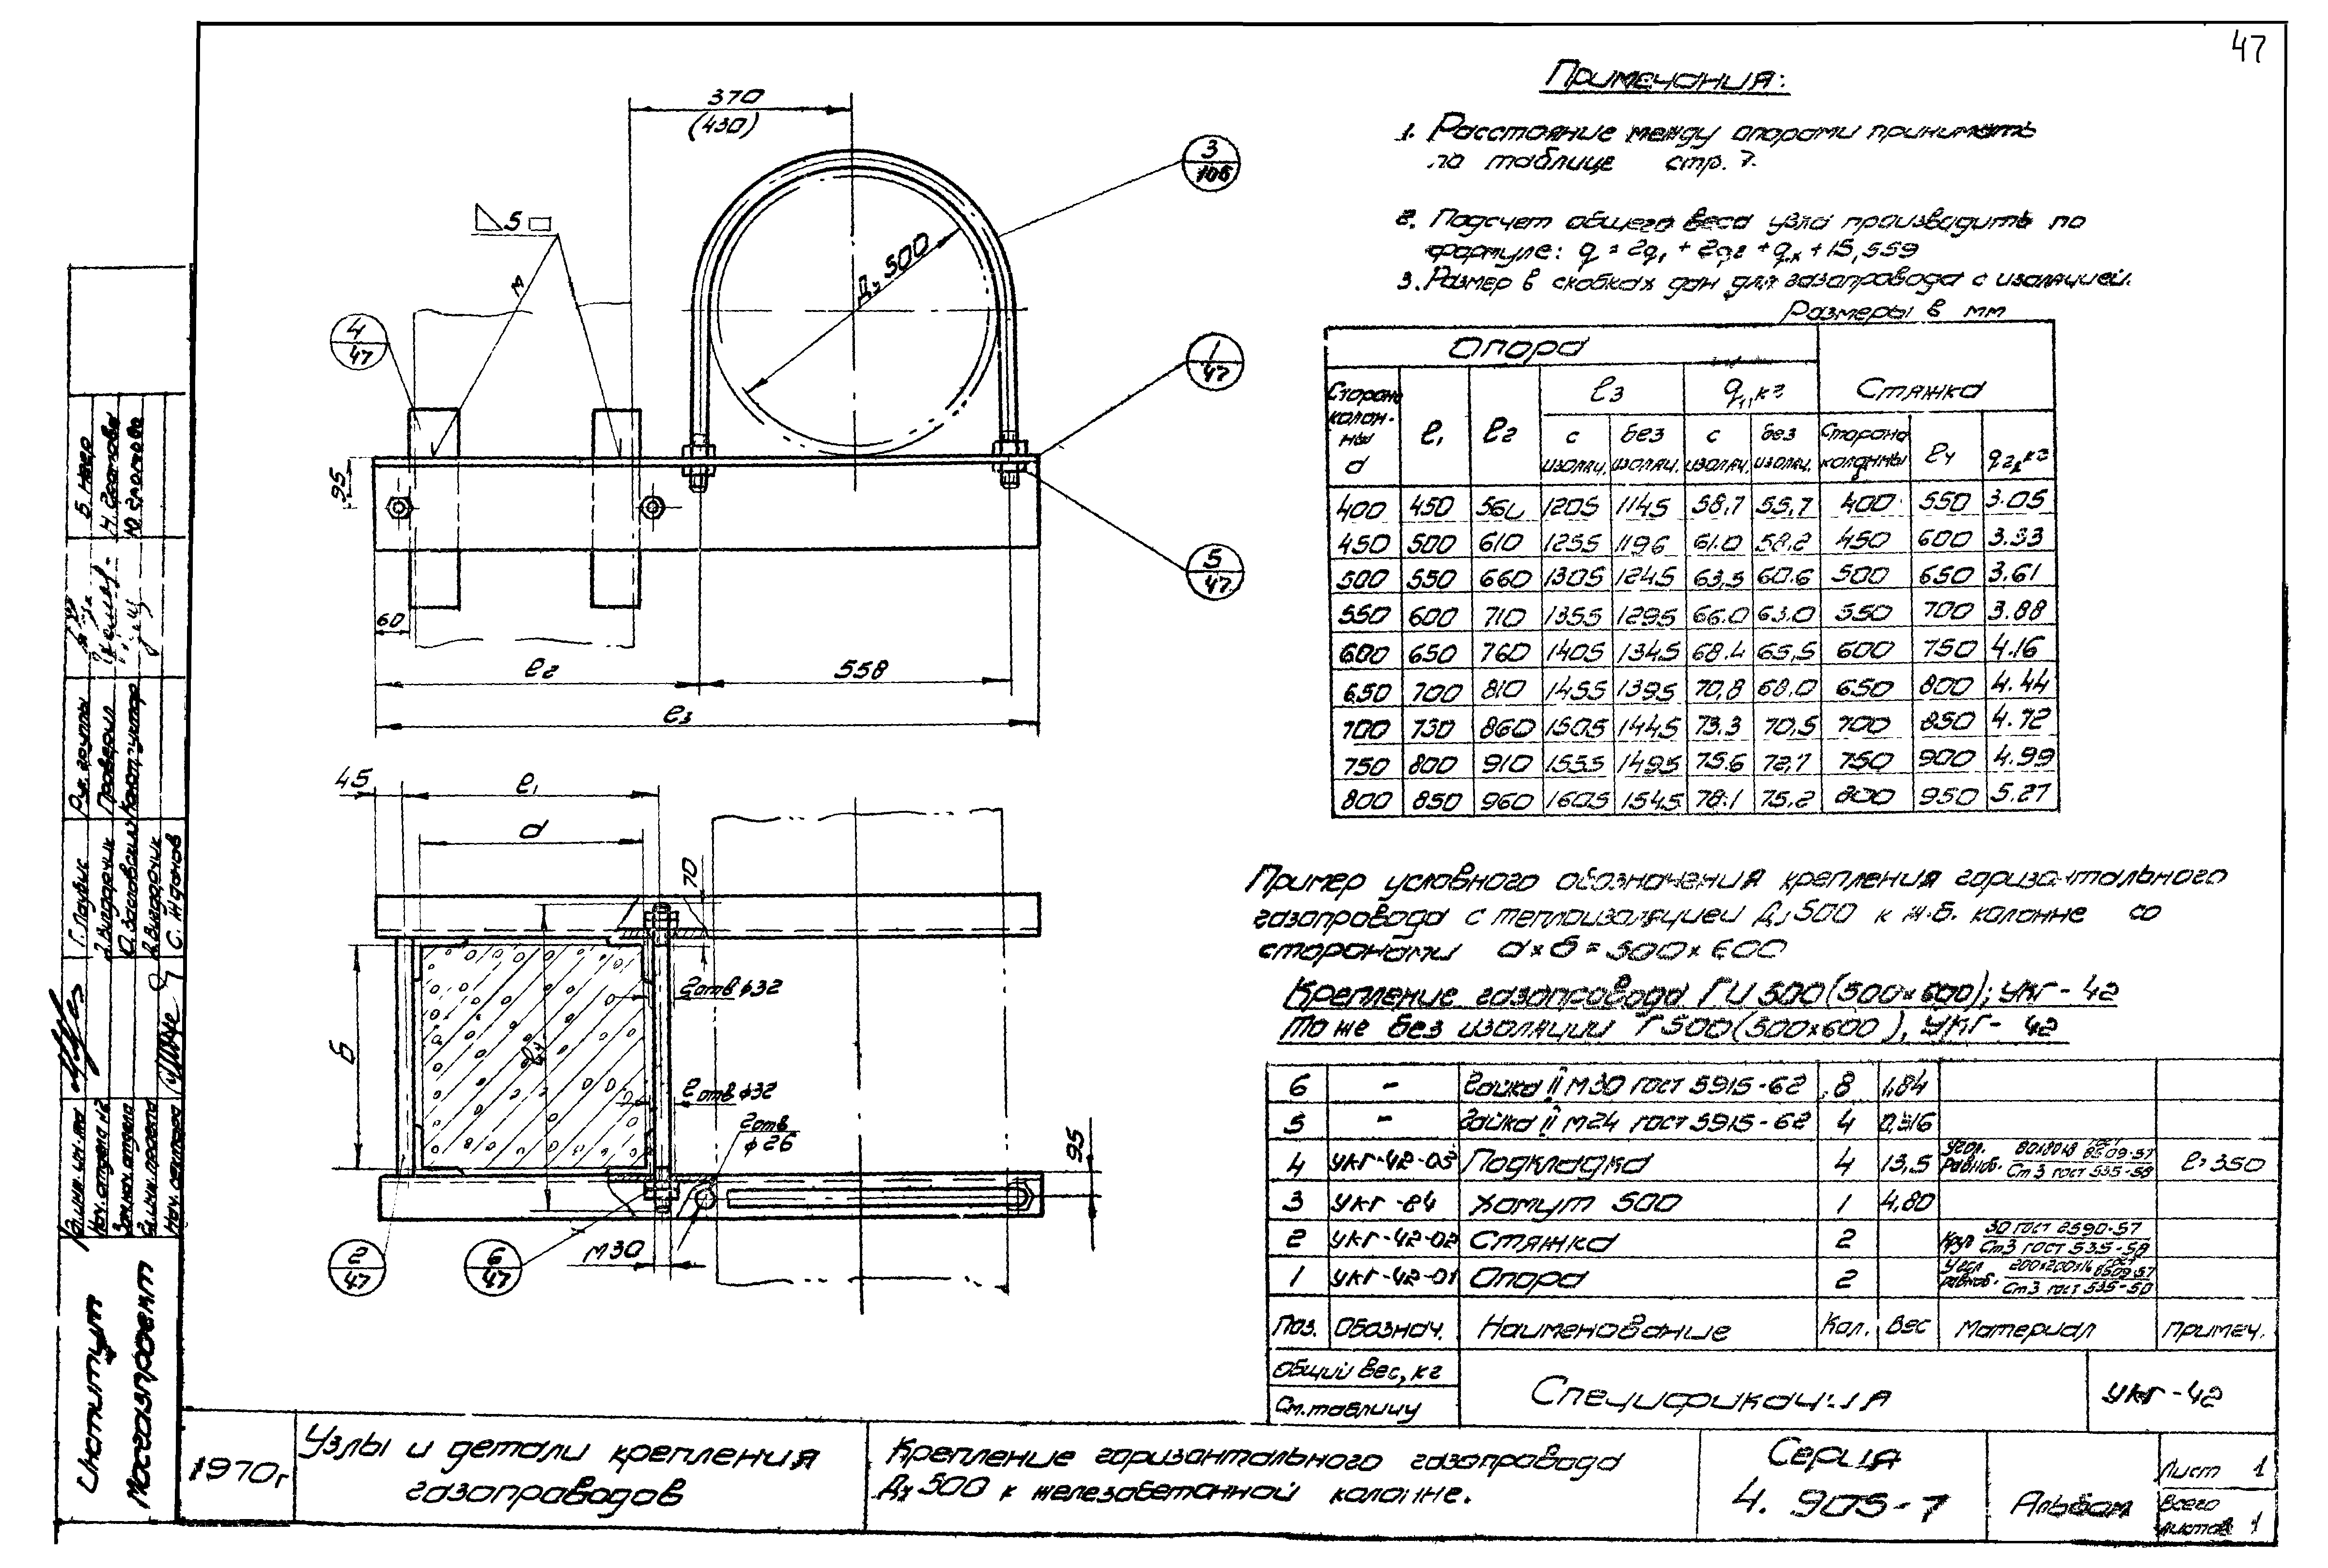 47
Примечания:
1. Расстояние между опорами принимать
по таблице стр. 7.
2. Подсчет общего веса узла производить по
формуле: q = 2q₁ + 2q₂ + qх + 15,559
3. Размер в скобках дан для газопровода с изоляцией.
Размеры в мм
Опора
Сторона колон-ны d | ℓ₁ | ℓ2 | ℓ3 | q₁, кг | Стяжка
с изоляц. | без изоляц. | с изоляц. | без изоляц. | Сторона колонны | ℓ4 | q2, кг
400 450 560 1205 1145 58,7 55,7 400 550 3.05
450 500 610 1255 1196 61.0 58.2 450 600 3.33
500 550 660 1305 1245 63,5 60.6 500 650 3.61
550 600 710 1355 1295 66.0 63.0 550 700 3.88
600 650 760 1405 1345 68.4 65,5 600 750 4.16
650 700 810 1455 1395 70,8 68.0 650 800 4.44
700 750 860 1505 1445 73.3 70,5 700 850 4.72
750 800 910 1555 1495 75.6 72,7 750 900 4.99
800 850 960 1605 1545 78.1 75.2 800 950 5.27
370
(430)
3
106
5
Ду 500
4
47
1
47
95
5
47
60
ℓ2
558
ℓ3
45
ℓ₁
d
70
2 отв ф32
б
ℓ4
2 отв ф32
2 отв
ф 26
95
М30
2
47
6
47
Пример условного обозначения крепления горизонтального
газопровода с теплоизоляцией Ду 500 к ж.б. колонне со
сторонами d×б = 500×600
Крепление газопровода ГИ 500 (500×600); УКГ-42
То же без изоляции Г500 (500×600), УКГ-42
6 - Гайка II М30 ГОСТ 5915-62 8 1,84
5 - Гайка II М24 ГОСТ 5915-62 4 0,516
4 УКГ-42-03 Подкладка 4 13,5 Угол. равноб. 80х80х8 ГОСТ 8509-57 Ст3 ГОСТ 535-58 ℓ=350
3 УКГ-84 Хомут 500 1 4,80
2 УКГ-42-02 Стяжка 2 Круг 30 ГОСТ 2590-57 Ст3 ГОСТ 535-58
1 УКГ-42-01 Опора 2 Угол равноб. 200х200х16 ГОСТ 8509-57 Ст3 ГОСТ 535-50
Поз. Обознач. Наименование Кол. Вес Материал Примеч.
Общий вес, кг
См. таблицу
Спецификация
УКГ-42
1970г
Узлы и детали крепления
газопроводов
Крепление горизонтального газопровода
Ду 500 к железобетонной колонне.
Серия
4. 905-7
Альбом
Лист 1
Всего
листов 1
Институт
Мосгазпроект
Нач. отдела №2
Нач. сектора
Г. Лаувис
С. Жданов
Рук. группы
Проверил
Конструктор